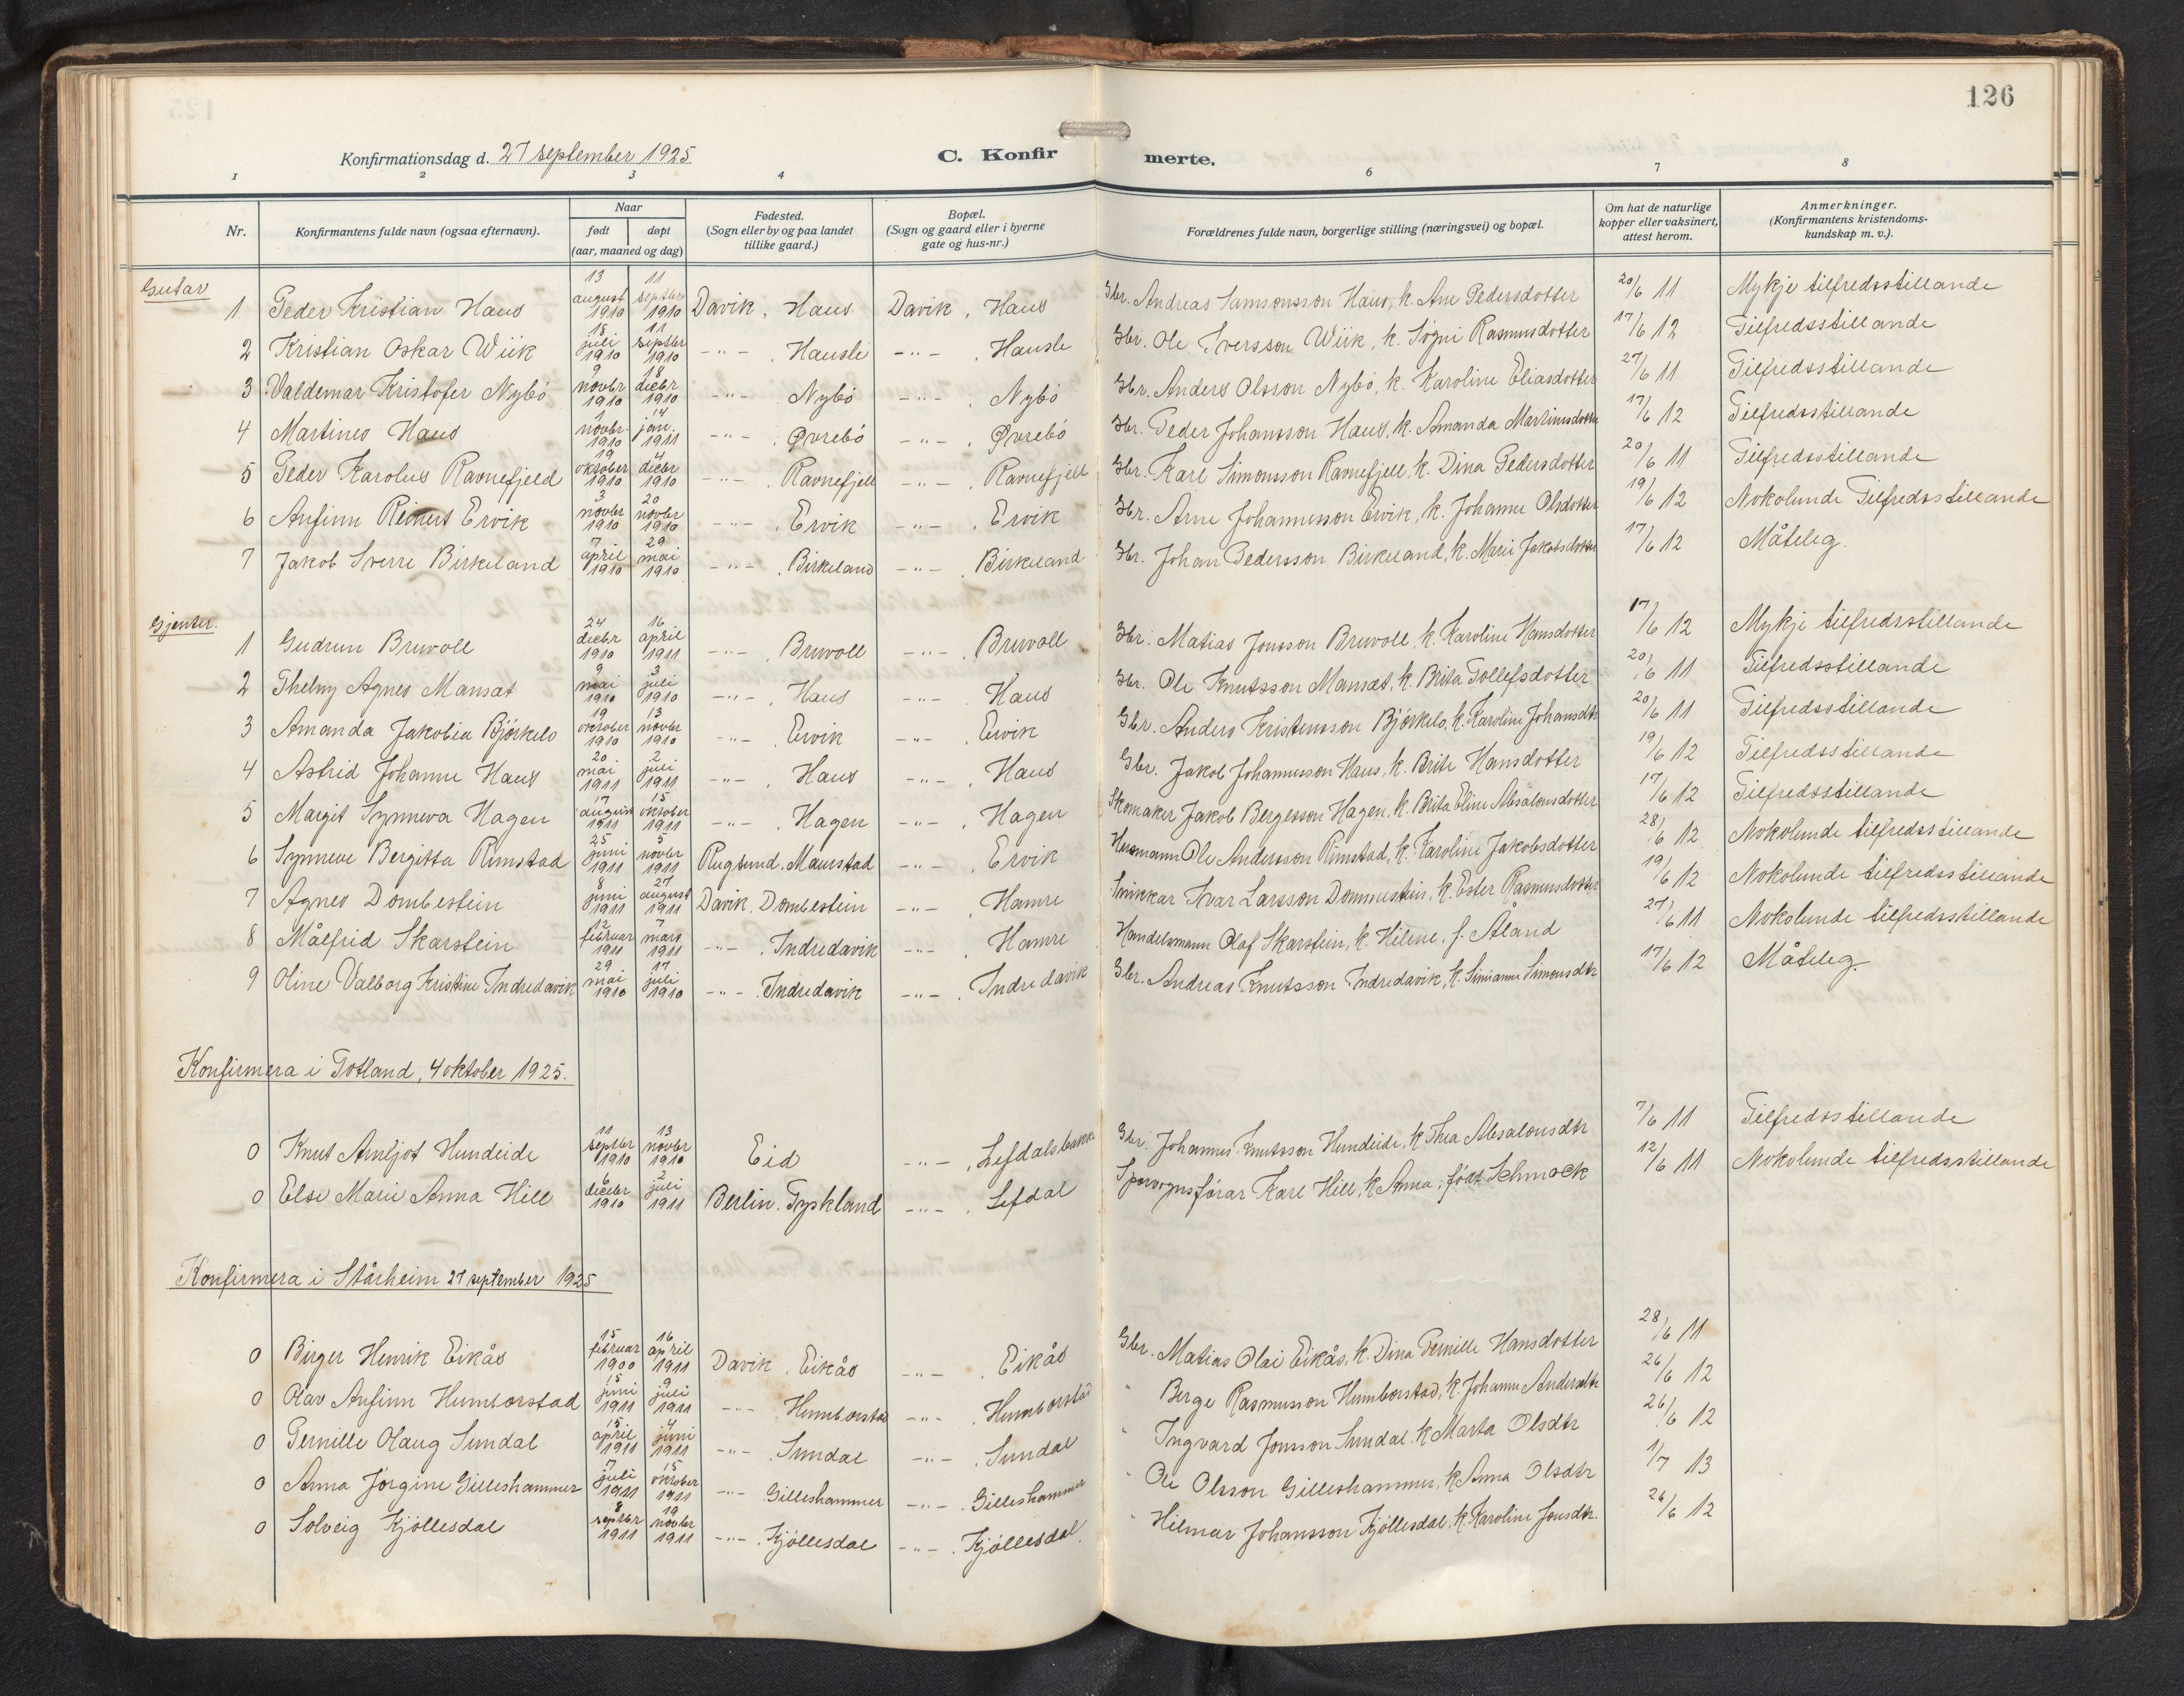 126
Konfirmationsdag d. 27 september 1925.
C. Konfirmerte.
1 2 3 4 6 7 8
Nr. Konfirmantens fulde navn (ogsaa efternavn). Naar født døpt (aar, maaned og dag) Fødested. (Sogn eller by og paa landet tillike gaard.) Bopæl. (Sogn og gaard eller i byerne gate og hus-nr.) Forældrenes fulde navn, borgerlige stilling (næringsvei) og bopæl. Om hat de naturlige kopper eller vaksinert, attest herom. Anmerkninger. (Konfirmantens kristendoms-kundskap m. v.).
Gutar
1 Peder Kristian Haus 13 august 1910 11 septbr 1910 Davik, Haus Davik, Haus Gbr. Andreas Samsonsson Haus, k. Ane Pedersdotter 20/6 11 Mykje tilfredsstillande
2 Kristian Oskar Wiik 18 juli 1910 11 septbr 1910 -"- . Hausle -"- . Hausle Gbr. Ole Iversson Wiik, k. Sogni Rasmusdotter 17/6 12 Tilfredsstillande
3 Valdemar Kristofer Nybö 9 novbr 1910 18 decbr 1910 -"- . Nybö -"- . Nybö Gbr. Anders Olsson Nybö, k. Karoline Eliasdotter 27/6 11 Tilfredsstillande
4 Martines Haus 1 novbr 1910 14 jan. 1911 -"- . Øvrebö -"- . Øvrebö Gbr. Peder Johansson Haus, k. Amanda Martinusdotter 17/6 12 Tilfredsstillande
5 Peder Karolus Ravnefjeld 19 oktober 1910 4 decbr 1910 -"- . Ravnefjell -"- . Ravnefjell Gbr. Karl Simonsson Ravnefjell, k. Dina Pedersdotter 20/6 11 Tilfredsstillande
6 Anfinn Reinert Ervik 3 novbr 1910 20 novbr 1910 -"- . Ervik -"- . Ervik Gbr. Arne Johannesson Ervik, k. Johanne Olsdotter 19/6 12 Nokolunde Tilfredsstillande
7 Jakob Sverre Birkeland 7 april 1910 29 mai 1910 -"- . Birkeland -"- . Birkeland Gbr. Johan Pedersson Birkeland, k. Marie Jakobsdotter 17/6 12 Måteleg.
Gjenter.
1 Gudrun Bruvoll 24 decbr 1910 16 april 1911 -"- . Bruvoll -"- . Bruvoll Gbr. Matias Jonsson Bruvoll, k. Karoline Hansdotter 17/6 12 Mykje tilfredsstillande
2 Thelmy Agnes Mansæt 9 mai 1910 3 juli 1910 -"- . Haus -"- . Haus Gbr. Ole Knutsson Mansæt, k. Brita Tollefsdotter 20/6 11 Tilfredsstillande
3 Amanda Jakobia Björkelo 19 oktober 1910 13 novbr 1910 -"- . Ervik -"- . Ervik Gbr. Anders Kristensson Björkelo, k. Karoline Johansdtr 20/6 11 Tilfredsstillande
4 Astrid Johanne Haus 20 mai 1911 2 juli 1911 -"- . Haus -"- . Haus Gbr. Jakob Johannesson Haus, k. Brite Hansdotter 19/6 12 Tilfredsstillande
5 Margit Synneva Hagen 17 august 1911 15 oktober 1911 -"- . Hagen -"- . Hagen Skomaker Jakob Bergesson Hagen, k. Brita Eline Absalonsdotter 17/6 12 Tilfredsstillande
6 Synneve Bergitta Rimstad 25 juni 1911 5 novbr 1911 Rugsund. Maurstad -"- . Ervik Husmann Ole Andersson Rimstad, k. Karoline Jakobsdotter 28/6 12 Nokolunde tilfredsstillande
7 Agnes Dombestein 8 juni 1911 27 august 1911 Davik. Dombestein -"- . Hamre Snikkar Ivar Larsson Dommestein, k. Ester Rasmusdotter 19/6 12 Nokolunde tilfredsstillande
8 Målfrid Skarstein 12 februar 1911 7 mars 1911 -"- . Indredavik -"- . Hamre Handelsmann Olaf Skarstein, k. Hilene, f. Åland 27/6 11 Nokolunde tilfredsstillande
9 Oline Valborg Kristine Indredavik 29 mai 1910 17 juli 1910 -"- . Indredavik -"- . Indredavik Gbr. Andreas Knutsson Indredavik, k. Simianne Simonsdtr 17/6 12 Måteleg.
Konfirmera i Totland, 4 oktober 1925.
0 Knut Arnljot Hundeide 11 septbr 1910 13 novbr 1910 Eid -"- . Lefdalsbakk Gbr. Johannes Knutsson Hundeide, k Thea Absalonsdtr 7/6 11 Tilfredsstillande
0 Else Marie Anna Hill 6 decbr 1910 2 juli 1911 Berlin. Tyskland -"- . Lefdal Sporvognsförar Karl Hill, k Anna, födt Schmock 12/6 11 Nokolunde tilfredsstillande
Konfirmera i Stårheim 27 september 1925
0 Birger Henrik Eikås 15 februar 1900 16 april 1911 Davik . Eikås -"- . Eikås Gbr. Matias Olai Eikås, k. Dina Pernille Hansdotter 28/6 11
0 Olav Anfinn Humborstad 15 juni 1911 9 juli 1911 -"- . Humborstad -"- . Humborstad " Berge Rasmusson Humborstad, k. Johanne Andersdtr 26/6 12
0 Pernille Olaug Sundal 15 april 1911 4 juni 1911 -"- . Sundal -"- . Sundal " Ingvard Jonsson Sundal, k Marta Olsdtr 26/6 12
0 Anna Jørgine Gilleshammer 7 juli 1911 15 oktober 1911 -"- . Gilleshammer -"- . Gilleshammer " Ole Olsson Gilleshammer, k Anna Olsdtr 1/7 13
0 Solveig Kjöllesdal 8 septbr 1911 19 novbr 1911 -"- . Kjöllesdal -"- . Kjöllesdal. " Hilmar Johansson Kjöllesdal, k. Karoline Jonsdtr. 26/6 12